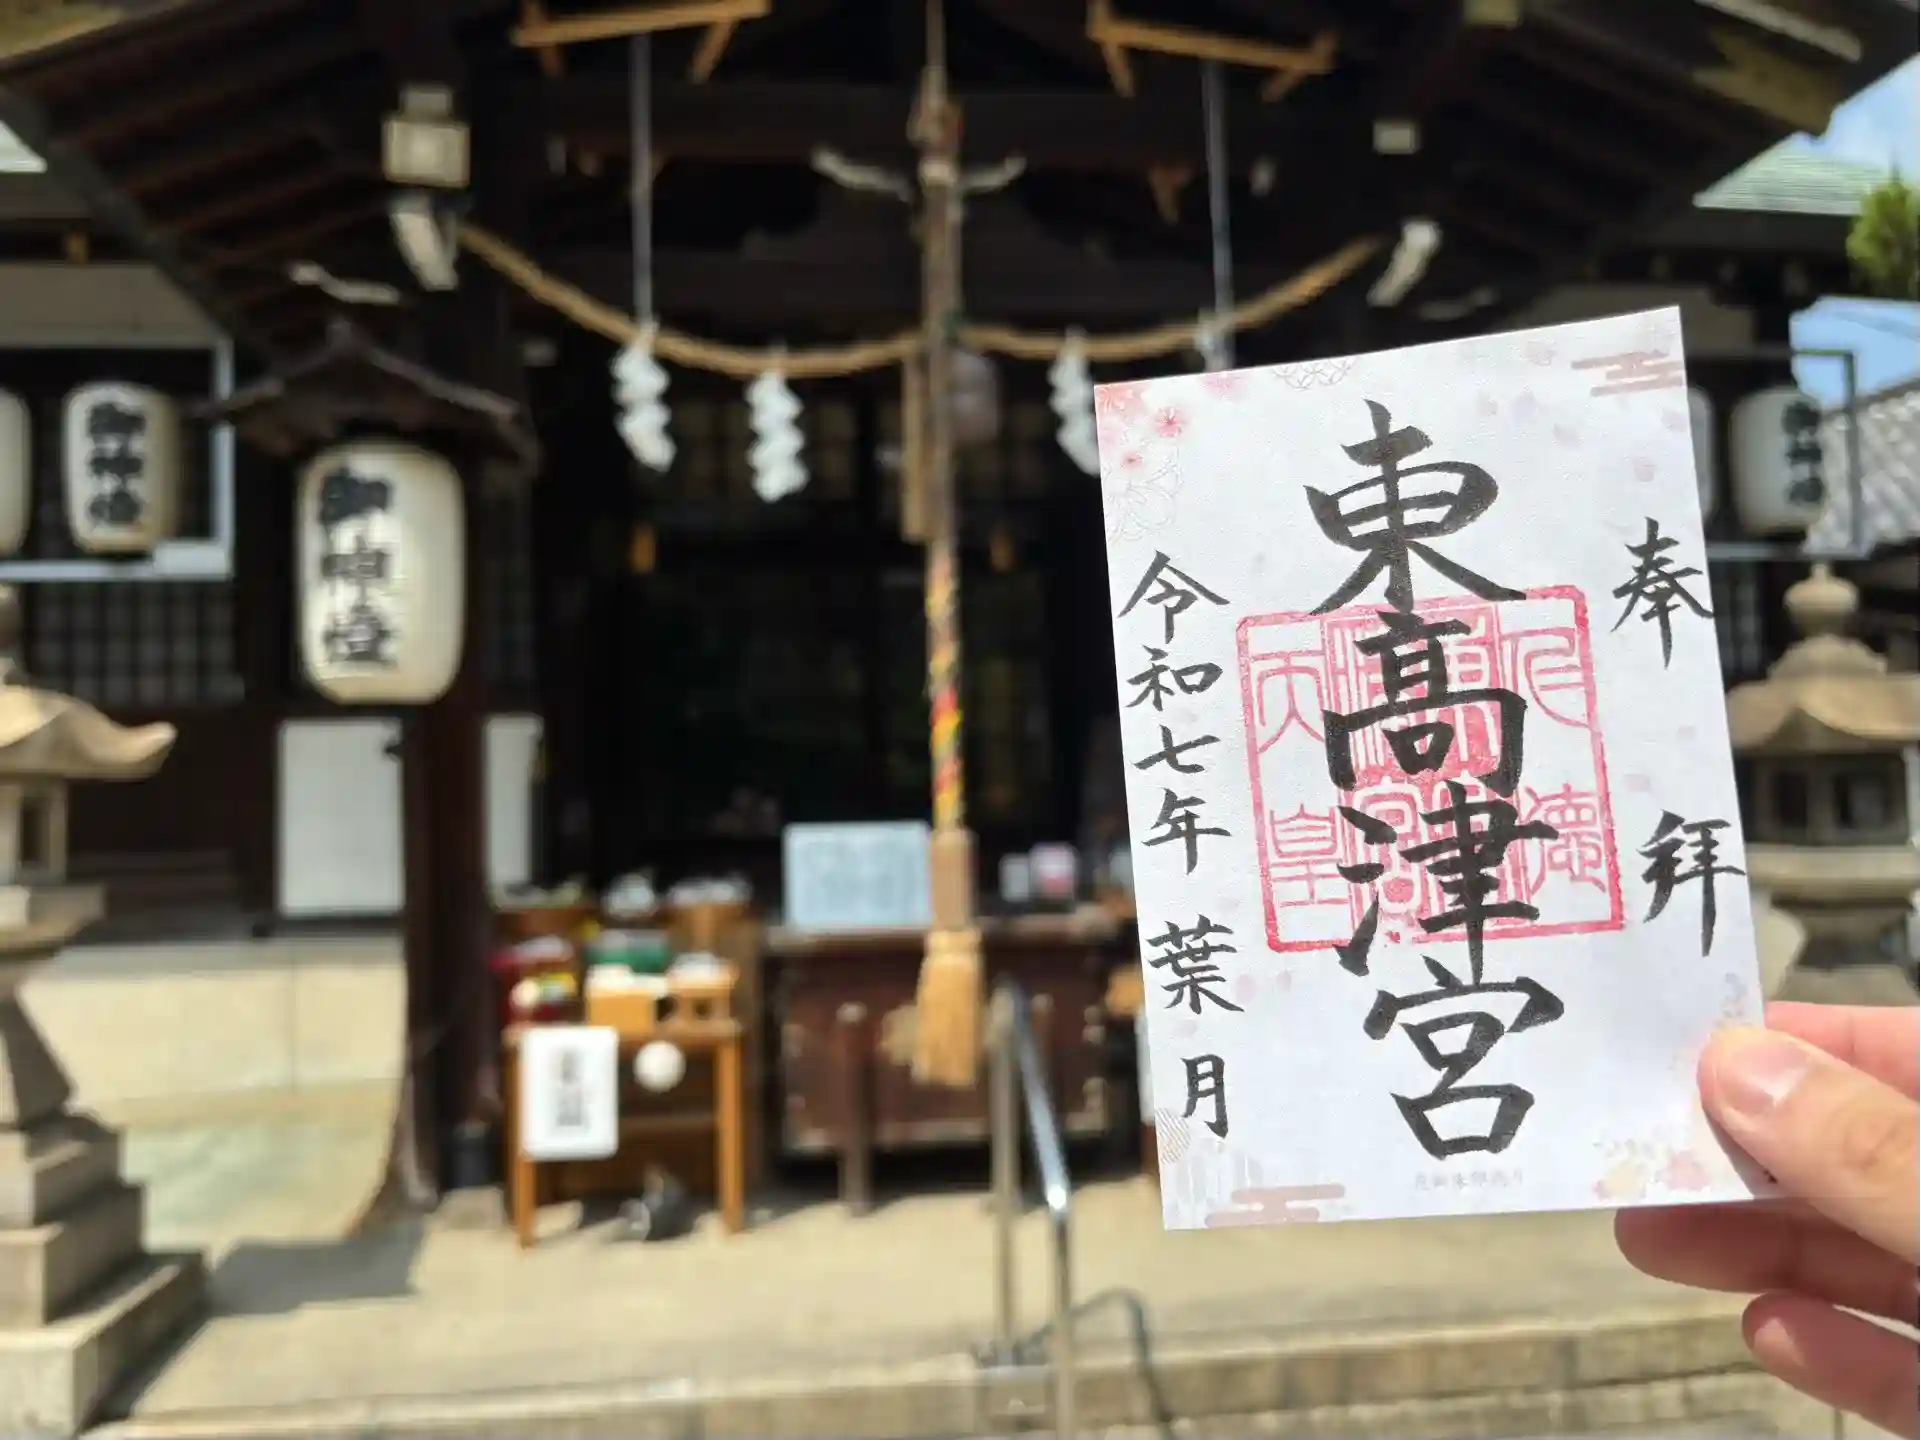 奉拝
東高津宮
令和七年葉月
仁徳
東高津宮
天皇
御神燈
御神燈
御神燈